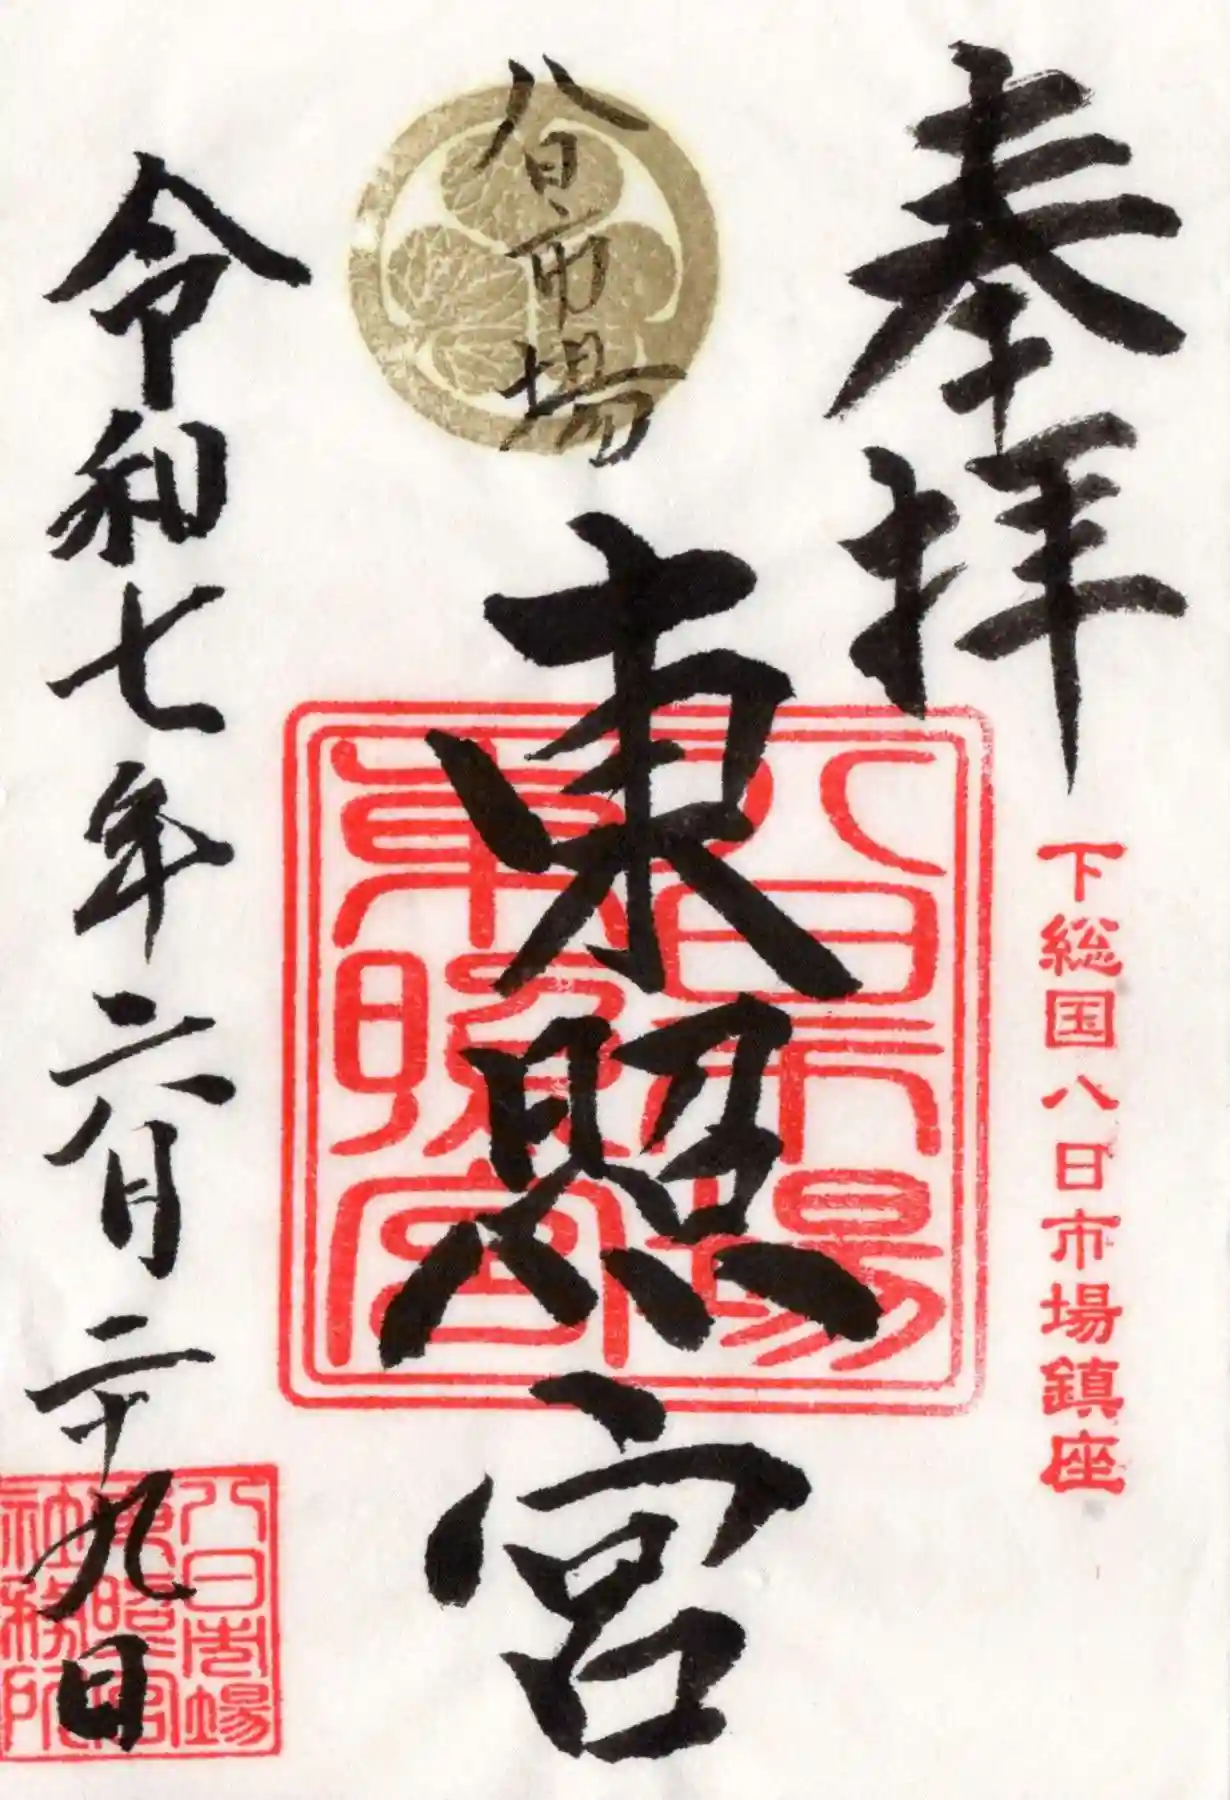 奉拝
下総国八日市場鎮座
八日市場
東照宮
八日市場
東照宮
令和七年六月二十九日
八日市場
東照宮
社務所